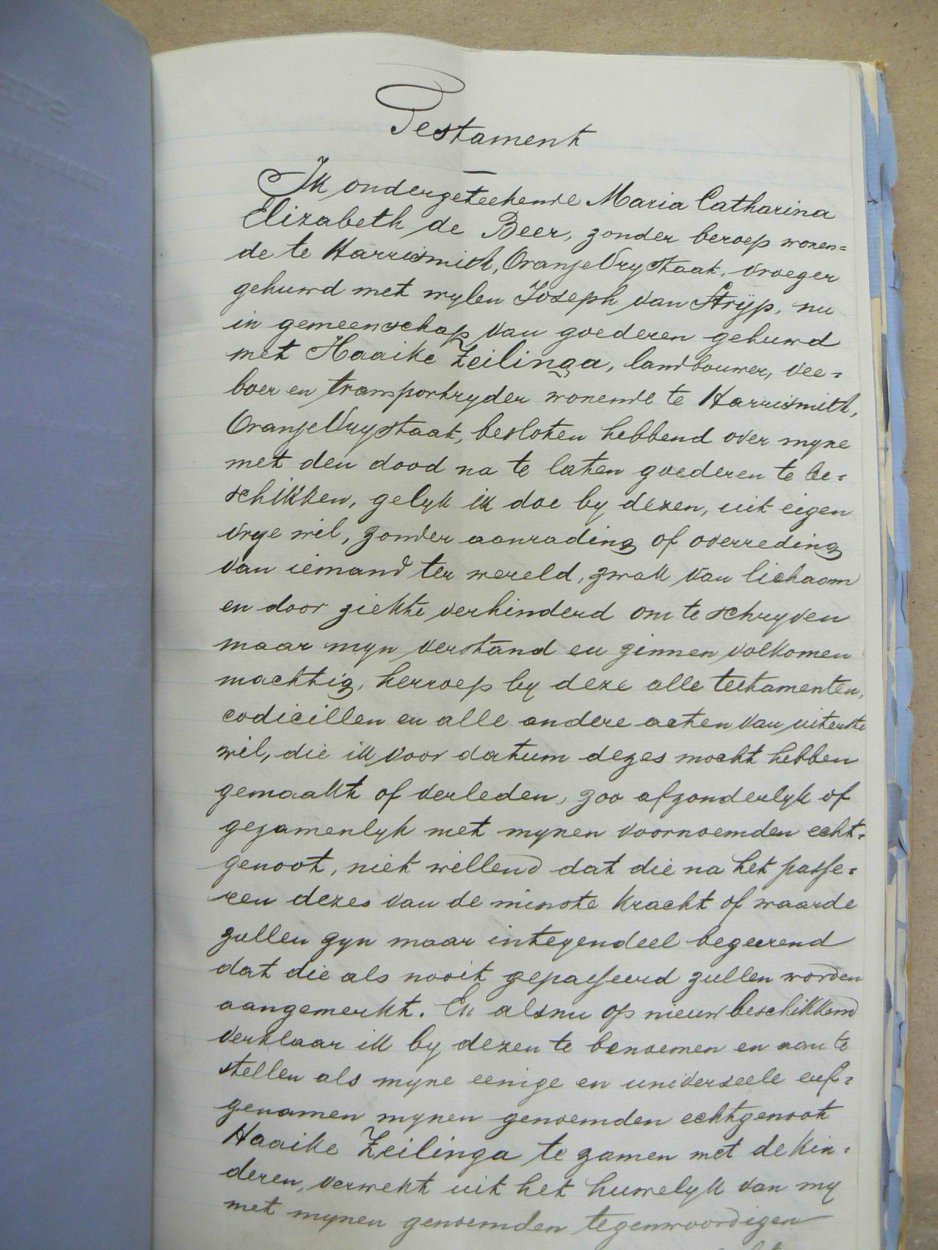 Testament
Ik ondergeteekende Maria Catharina
Elizabeth de Beer, zonder beroep wonen=
de te Harrismith, OranjeVrystaat, vroeger
gehuwd met wylen Joseph van Stryp, nu
in gemeenschap van goederen gehuwd
met Haaike Zeilinga, landbouwer, vee=
boer en transportryder wonende te Harrismith,
OranjeVrystaat, besloten hebbend over myne
met den dood na te laten goederen te be=
schikken, gelyk ik doe by dezen, uit eigen
vrye wil, zonder aanrading of overreding
van iemand ter wereld, zwak van lichaam
en door ziekte verhinderd om te schryven
maar myn verstand en zinnen volkomen
machtig, herroep by deze alle testamenten,
codicillen en alle andere acten van uiterste
wil, die ik voor datum dezes mocht hebben
gemaakt of verleden, zoo afzonderlyk of
gezamenlyk met mynen voornoemden echt=
genoot, niet willend dat die na het passe=
ren dezes van de minste kracht of waarde
zullen zyn maar integendeel begeerend
dat die als nooit gepasseerd zullen worden
aangemerkt. En alsnu op nieuw beschikkend
verklaar ik by dezen te benoemen en aan te
stellen als myne eenige en universeele erf=
genamen mynen genoemden echtgenoot
Haaike Zeilinga te zamen met de kin=
deren, verwekt uit het huwelyk van my
met mynen genoemden tegenwoordigen